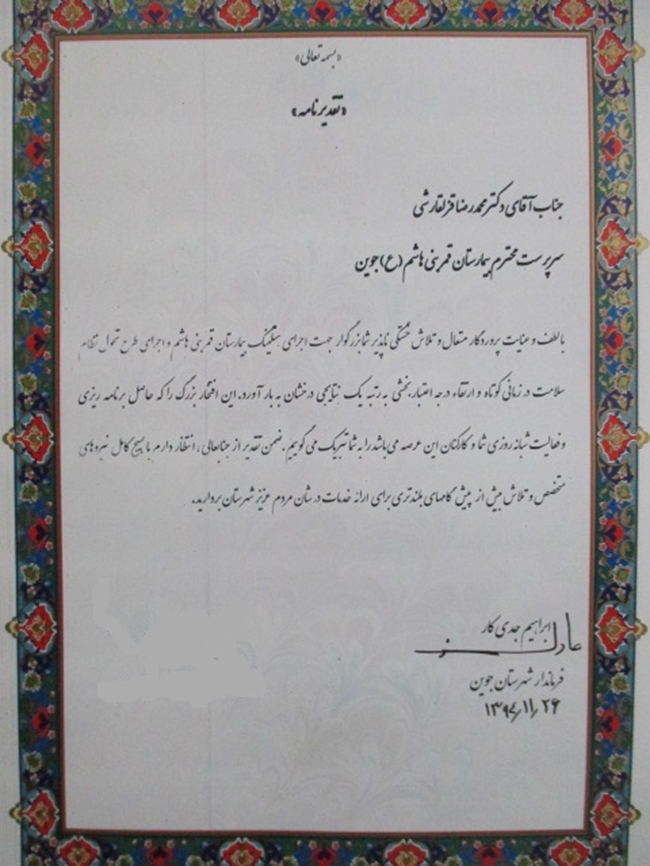 «بسمه تعالی»
«تقدیرنامه»
جناب آقای دکتر محمدرضا قزلقارشی
سرپرست محترم بیمارستان قمربنی هاشم (ع) جوین
با لطف و عنایت پروردگار متعال و تلاش خستگی ناپذیر شما بزرگوار جهت اجرای هتلینگ بیمارستان قمربنی هاشم و اجرای طرح تحول نظام
سلامت در زمانی کوتاه و ارتقاء درجه اعتبار بخشی به رتبه یک نتایجی درخشان به بار آورد. این افتخار بزرگ را که حاصل برنامه ریزی
و فعالیت شبانه روزی شما و کارکنان این عرصه می باشد را به شما تبریک می گوییم. ضمن تقدیر از جنابعالی، انتظار دارم با بسیج کامل نیروهای
متخصص و تلاش بیش از پیش گامهای بلندتری برای ارائه خدمات در شان مردم عزیز شهرستان بردارید.
ابراهیم جدی کار
فرماندار شهرستان جوین